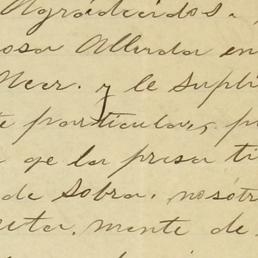 Agradecidos.
osa Allada en
y le Supli
te particular, p
a qe la presa ti
de Sobra. nosotr
reta. mente de